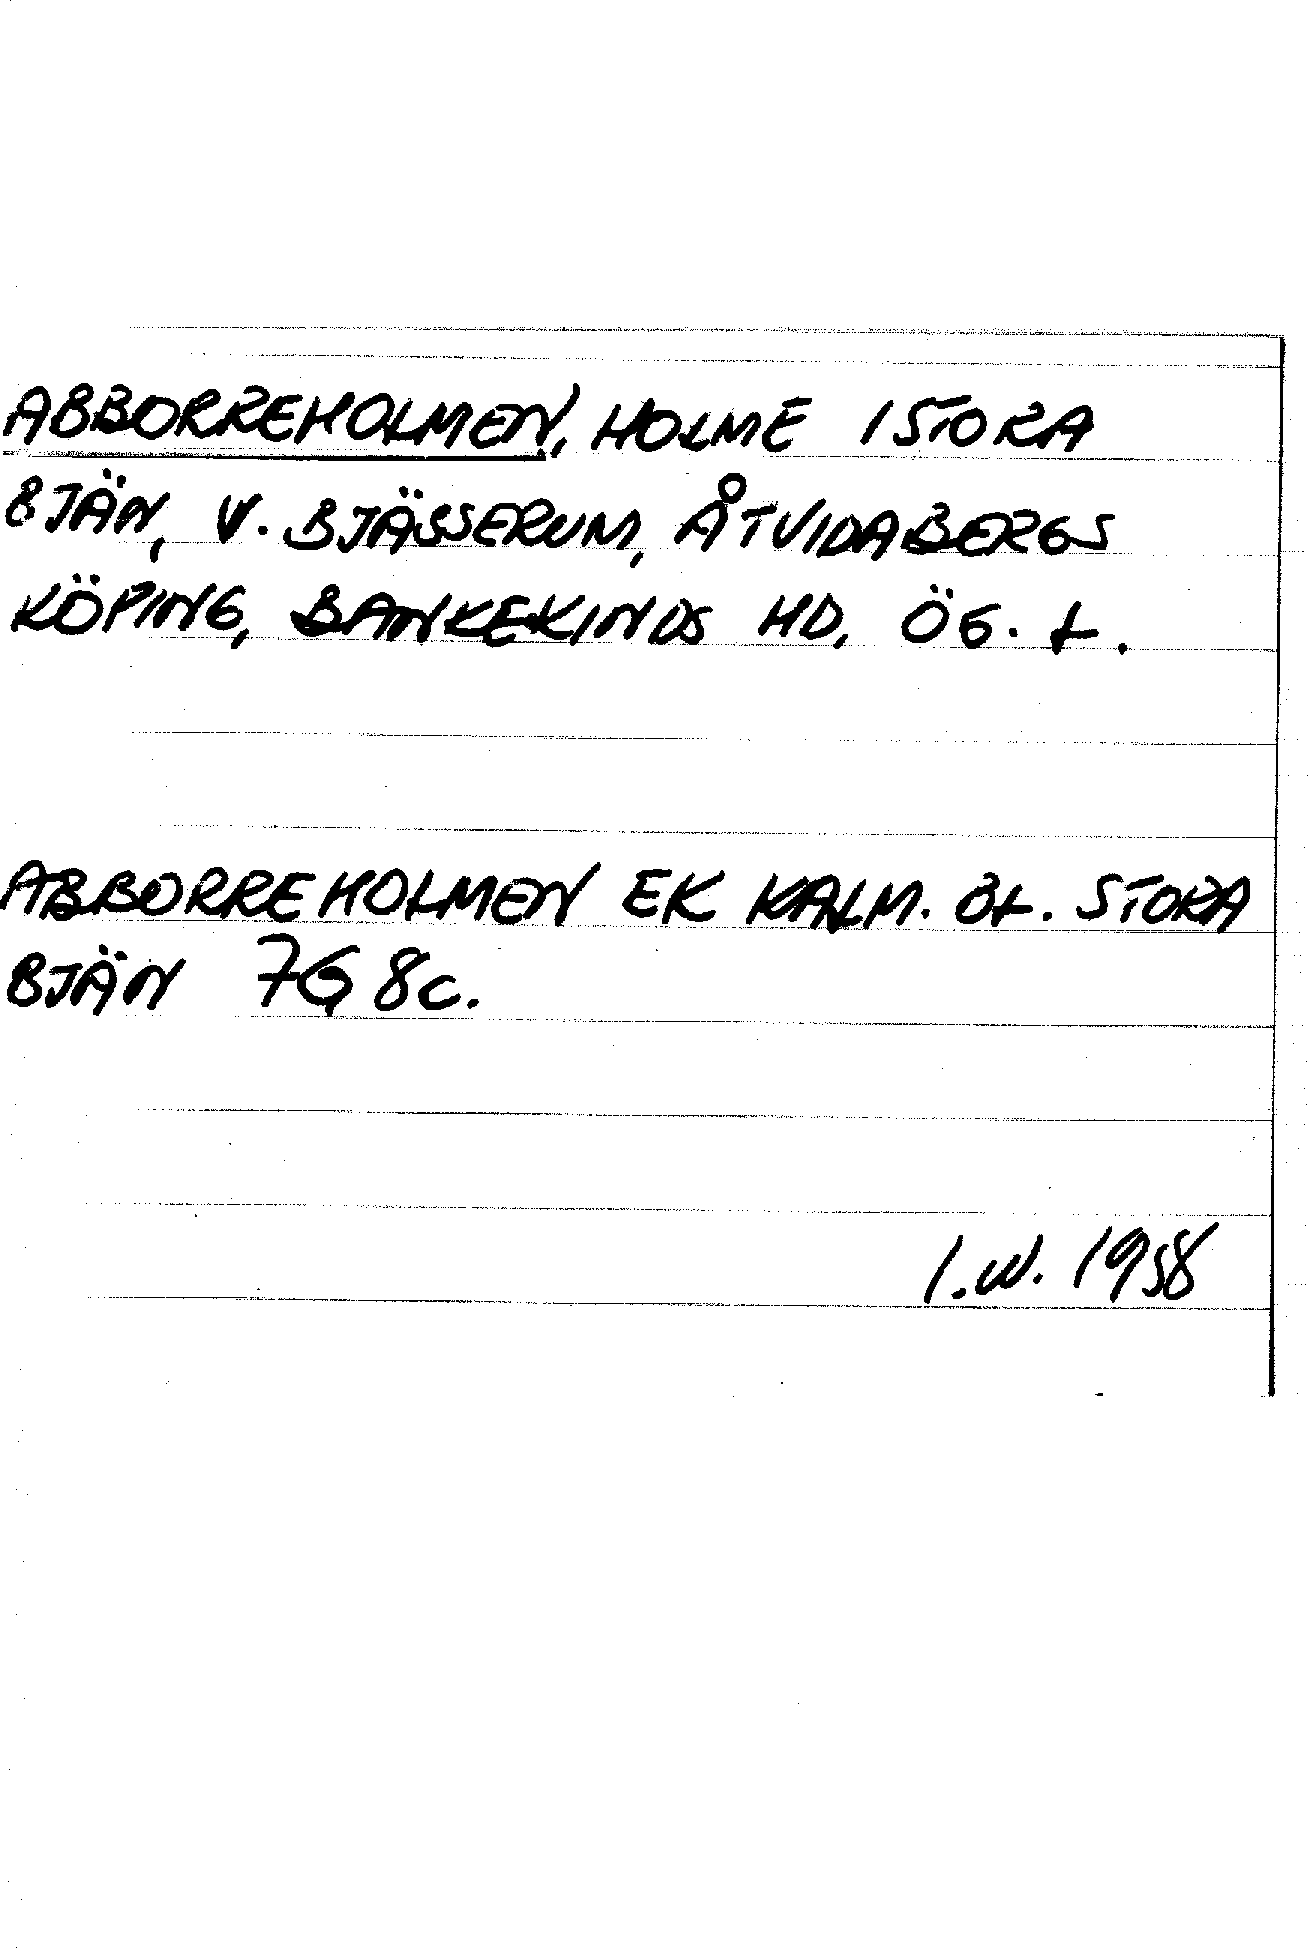 ABBORREHOLMEN, HOLME I STORA
BJÄN, V. BJÄSSERUM, ÅTVIDABERGS
KÖPING, BANKEKINDS HD, ÖG. L.
ABBORREHOLMEN EK KALM. BL. STORA
BJÄN 7G 8c.
I.W. 1958